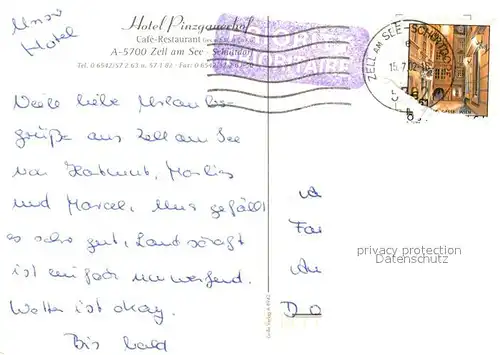 Unser
Hotel
Hotel Pinzgauerhof
Café-Restaurant
A-5700 Zell am See - Schüttdorf
Tel. 0 65 42/57 2 63 u. 57 1 82 · Fax: 0 65 42/57
PRIORITAIRE
ZELL AM SEE - SCHÜTTDORF
15.7.02
Viele liebe Urlaubs-
grüße aus Zell am See
von Hartmut, Marlies
und Marcel. Uns gefällt
es sehr gut, Landschaft
ist einfach umwerfend.
Wetter ist okay.
Bis bald
Fa
D
privacy protection
Datenschutz